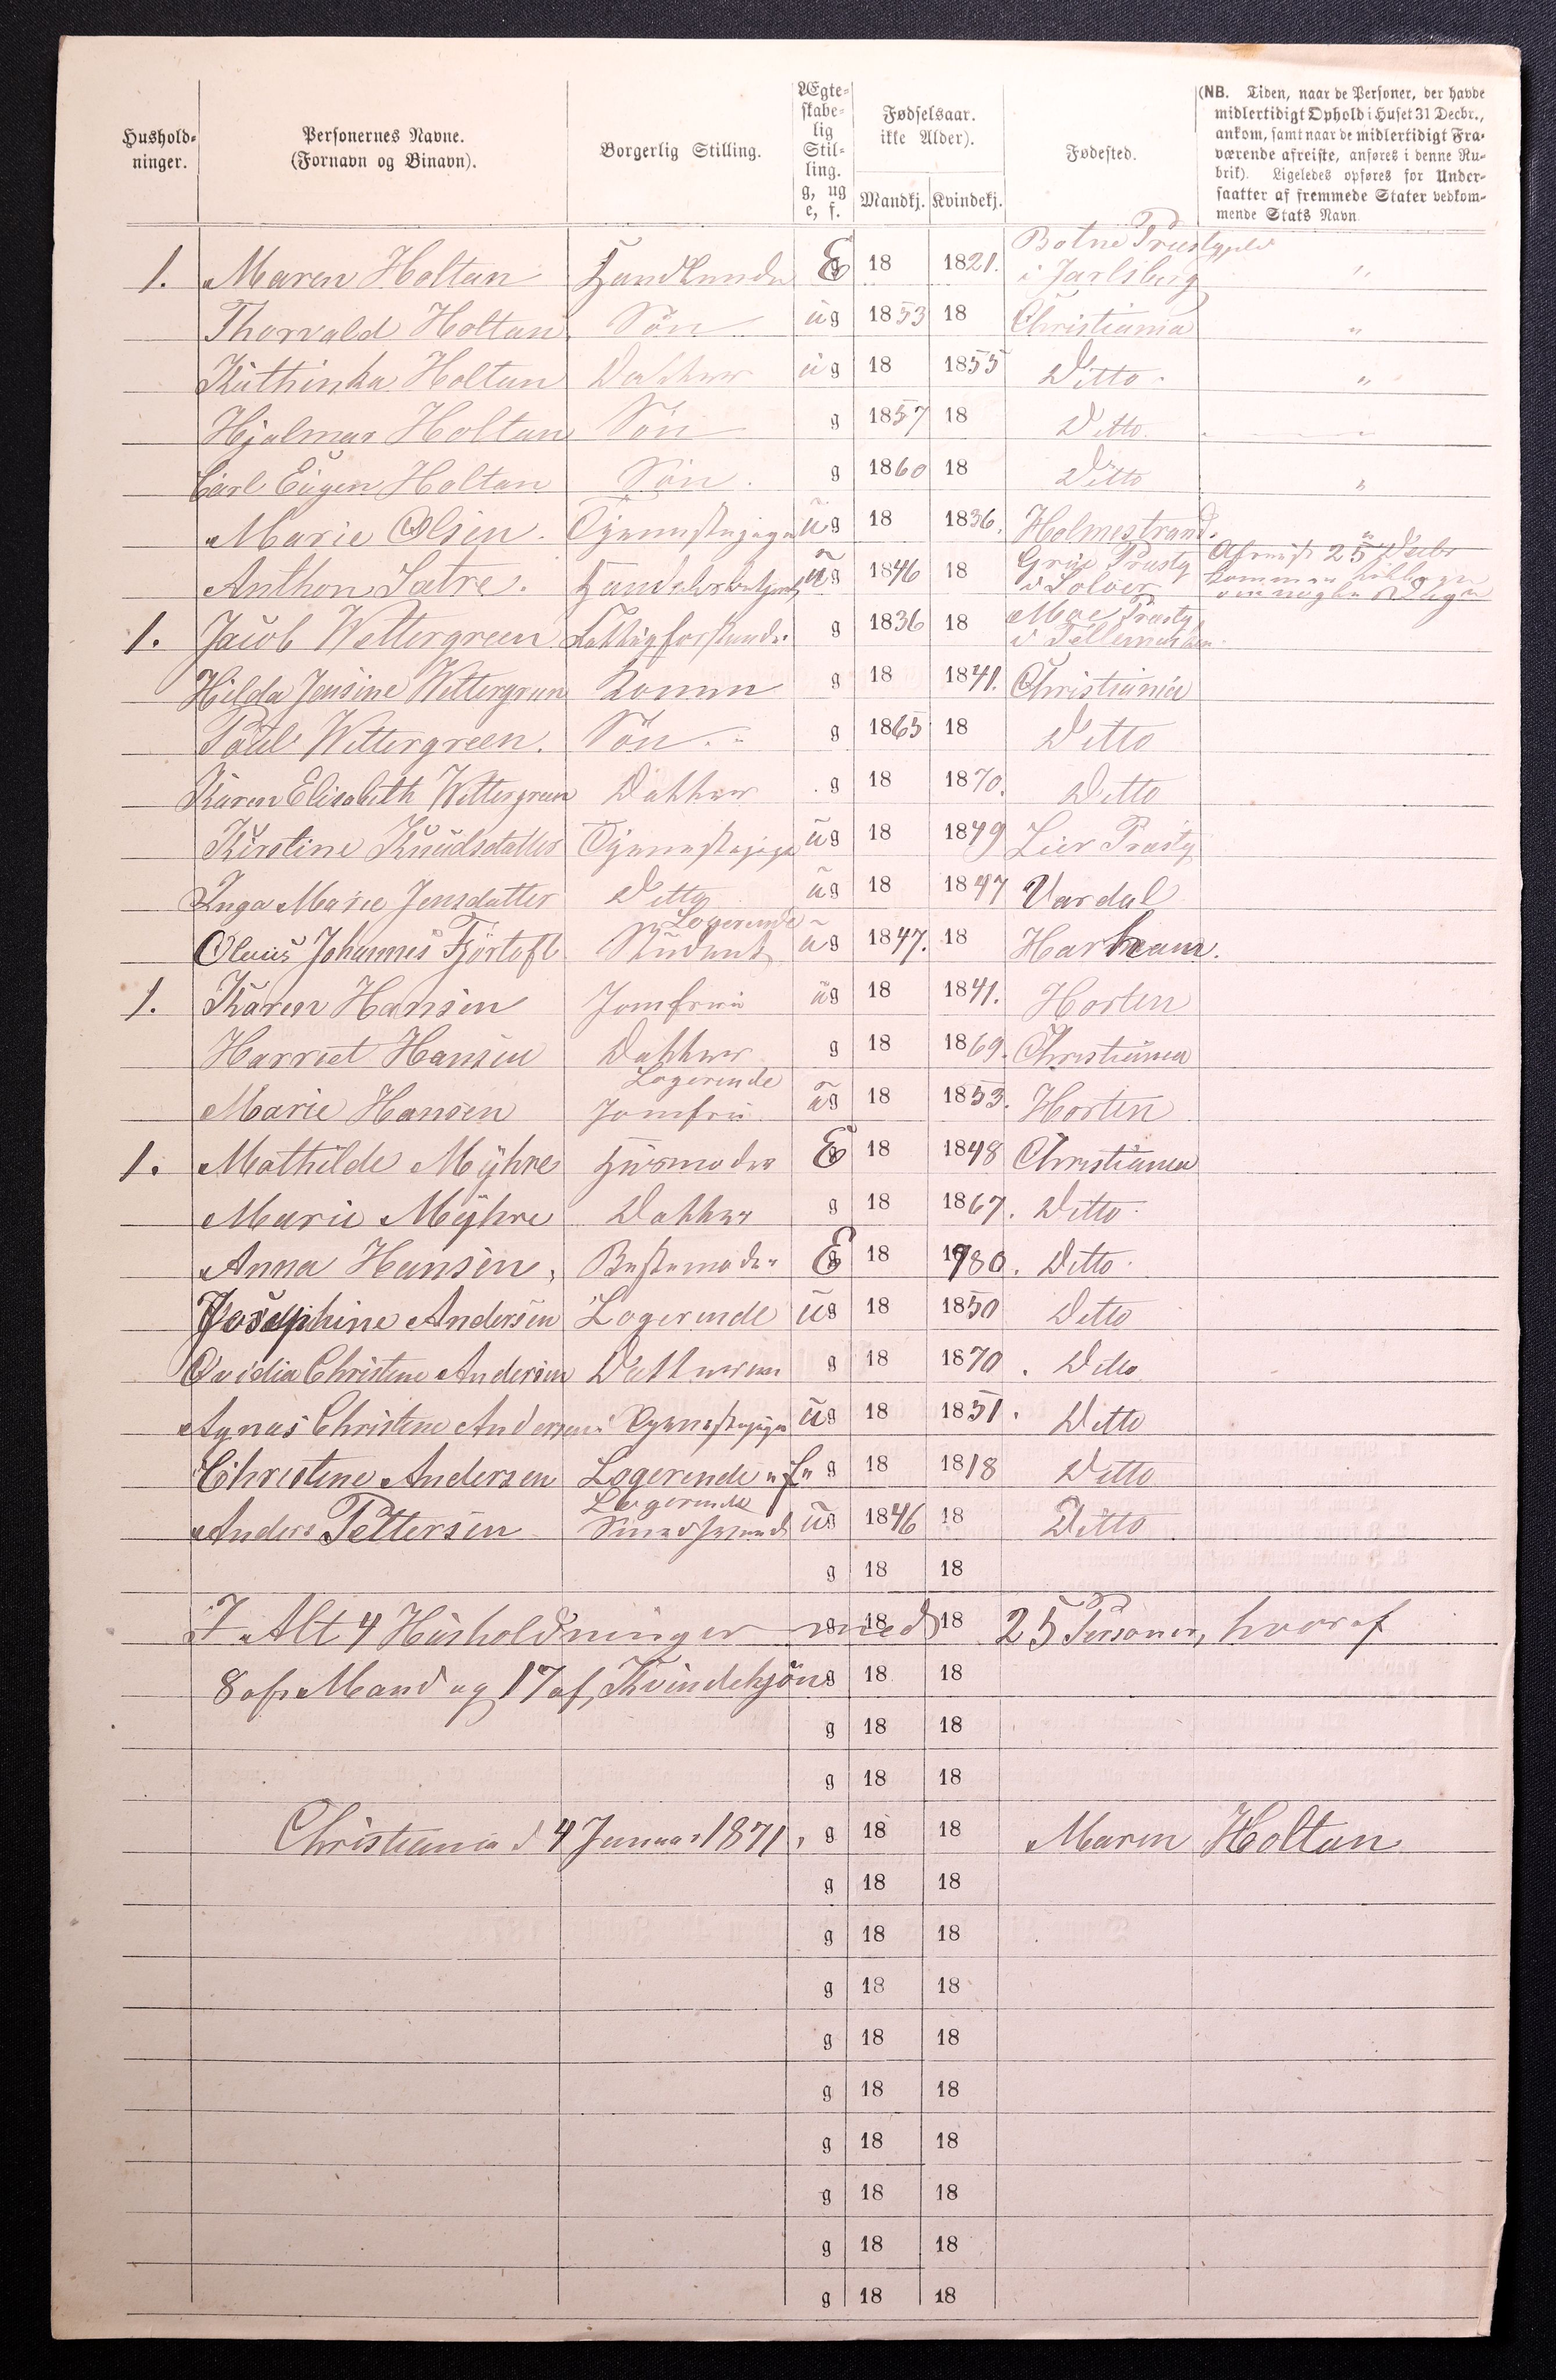 Hushold-
ninger.
Personernes Navne.
(Fornavn og Binavn).
Borgerlig Stilling.
Ægte-
skabe-
lig
Stil-
ling.
g, ug
e, f.
Fødselsaar.
ikke Alder).
Mandkj. Kvindekj.
Fødested.
(NB. Tiden, naar de Personer, der havde
midlertidigt Ophold i Huset 31 Decbr.,
ankom, samt naar de midlertidigt Fra-
værende afreiste, anføres i denne Ru-
brik). Ligeledes opføres for Under-
saatter af fremmede Stater vedkom-
mende Stats Navn.
1. Maren Holtan Handlende E 18 1821. Botne Præstegjeld i Jarlsberg "
Thorvald Holtan Søn ug 1853 18 Christiania "
Kathinka Holtan Datter ug 18 1855 Ditto. "
Hjalmar Holtan Søn g 1857 18 Ditto
Carl Eugen Holtan Søn. g 1860 18 Ditto "
Marie Olsen. Tjenestepige ug 18 1836. Holmestrand. "
Anthon Satre. ug 1846 18 Grue Præstg i Soløer Afreist 25 Decbr kommer tilbage om nogle Dage
1. Jacob Wettergreen Fattigforstander g 1836 18 Moe Præstg i Tellemarken.
Hilda Jensine Wettergreen Konen g 18 1841. Christiania
Paul Wettergreen. Søn. g 1865 18 Ditto
Karen Elisabeth Wettergreen Datter g 18 1870. Ditto
Kirstine Knudsdatter Tjenestepige ug 18 1849 Lier Præstg
Inga Marie Jensdatter Ditto ug 18 1847 Vardal
Olaus Johannes Fjørtoft Logerende Student ug 1847. 18 Harham.
1. Karen Hansen Jomfru ug 18 1841. Horten
Harriet Hansen Datter g 18 1869. Christiania
Marie Hansen Logerende Jomfru ug 18 1853. Horten
1. Mathilde Myhre Husmoder E 18 1848 Christiania
Marie Myhre Datter g 18 1867. Ditto.
Anna Hansen, Bestemoder E 18 1780. Ditto.
Josephine Andersen Logerende ug 18 1850 Ditto
Ovidia Christine Andersen Datteren g 18 1870. Ditto
Agnas Christine Andersen Tjenestepige ug 18 1851. Ditto
Christine Andersen Logerende "f" g 18 1818 Ditto
Anders Pettersen Logerende Smedsvend ug 1846 18 Ditto
g 18 18
I Alt 4 Husholdninger med g 18 18 25 Personer, hvoraf
8 af Mand og 17 af Kvindekjøn g 18 18
g 18 18
g 18 18
Christiania d 4 Januar 1871, g 18 18 Maren Holtan
g 18 18
g 18 18
g 18 18
g 18 18
g 18 18
g 18 18
g 18 18
g 18 18
g 18 18